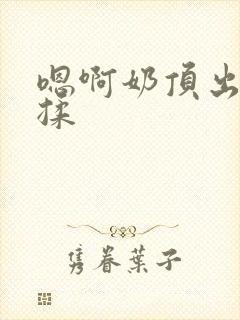 嗯啊奶頂出
揉
隽眷葉子